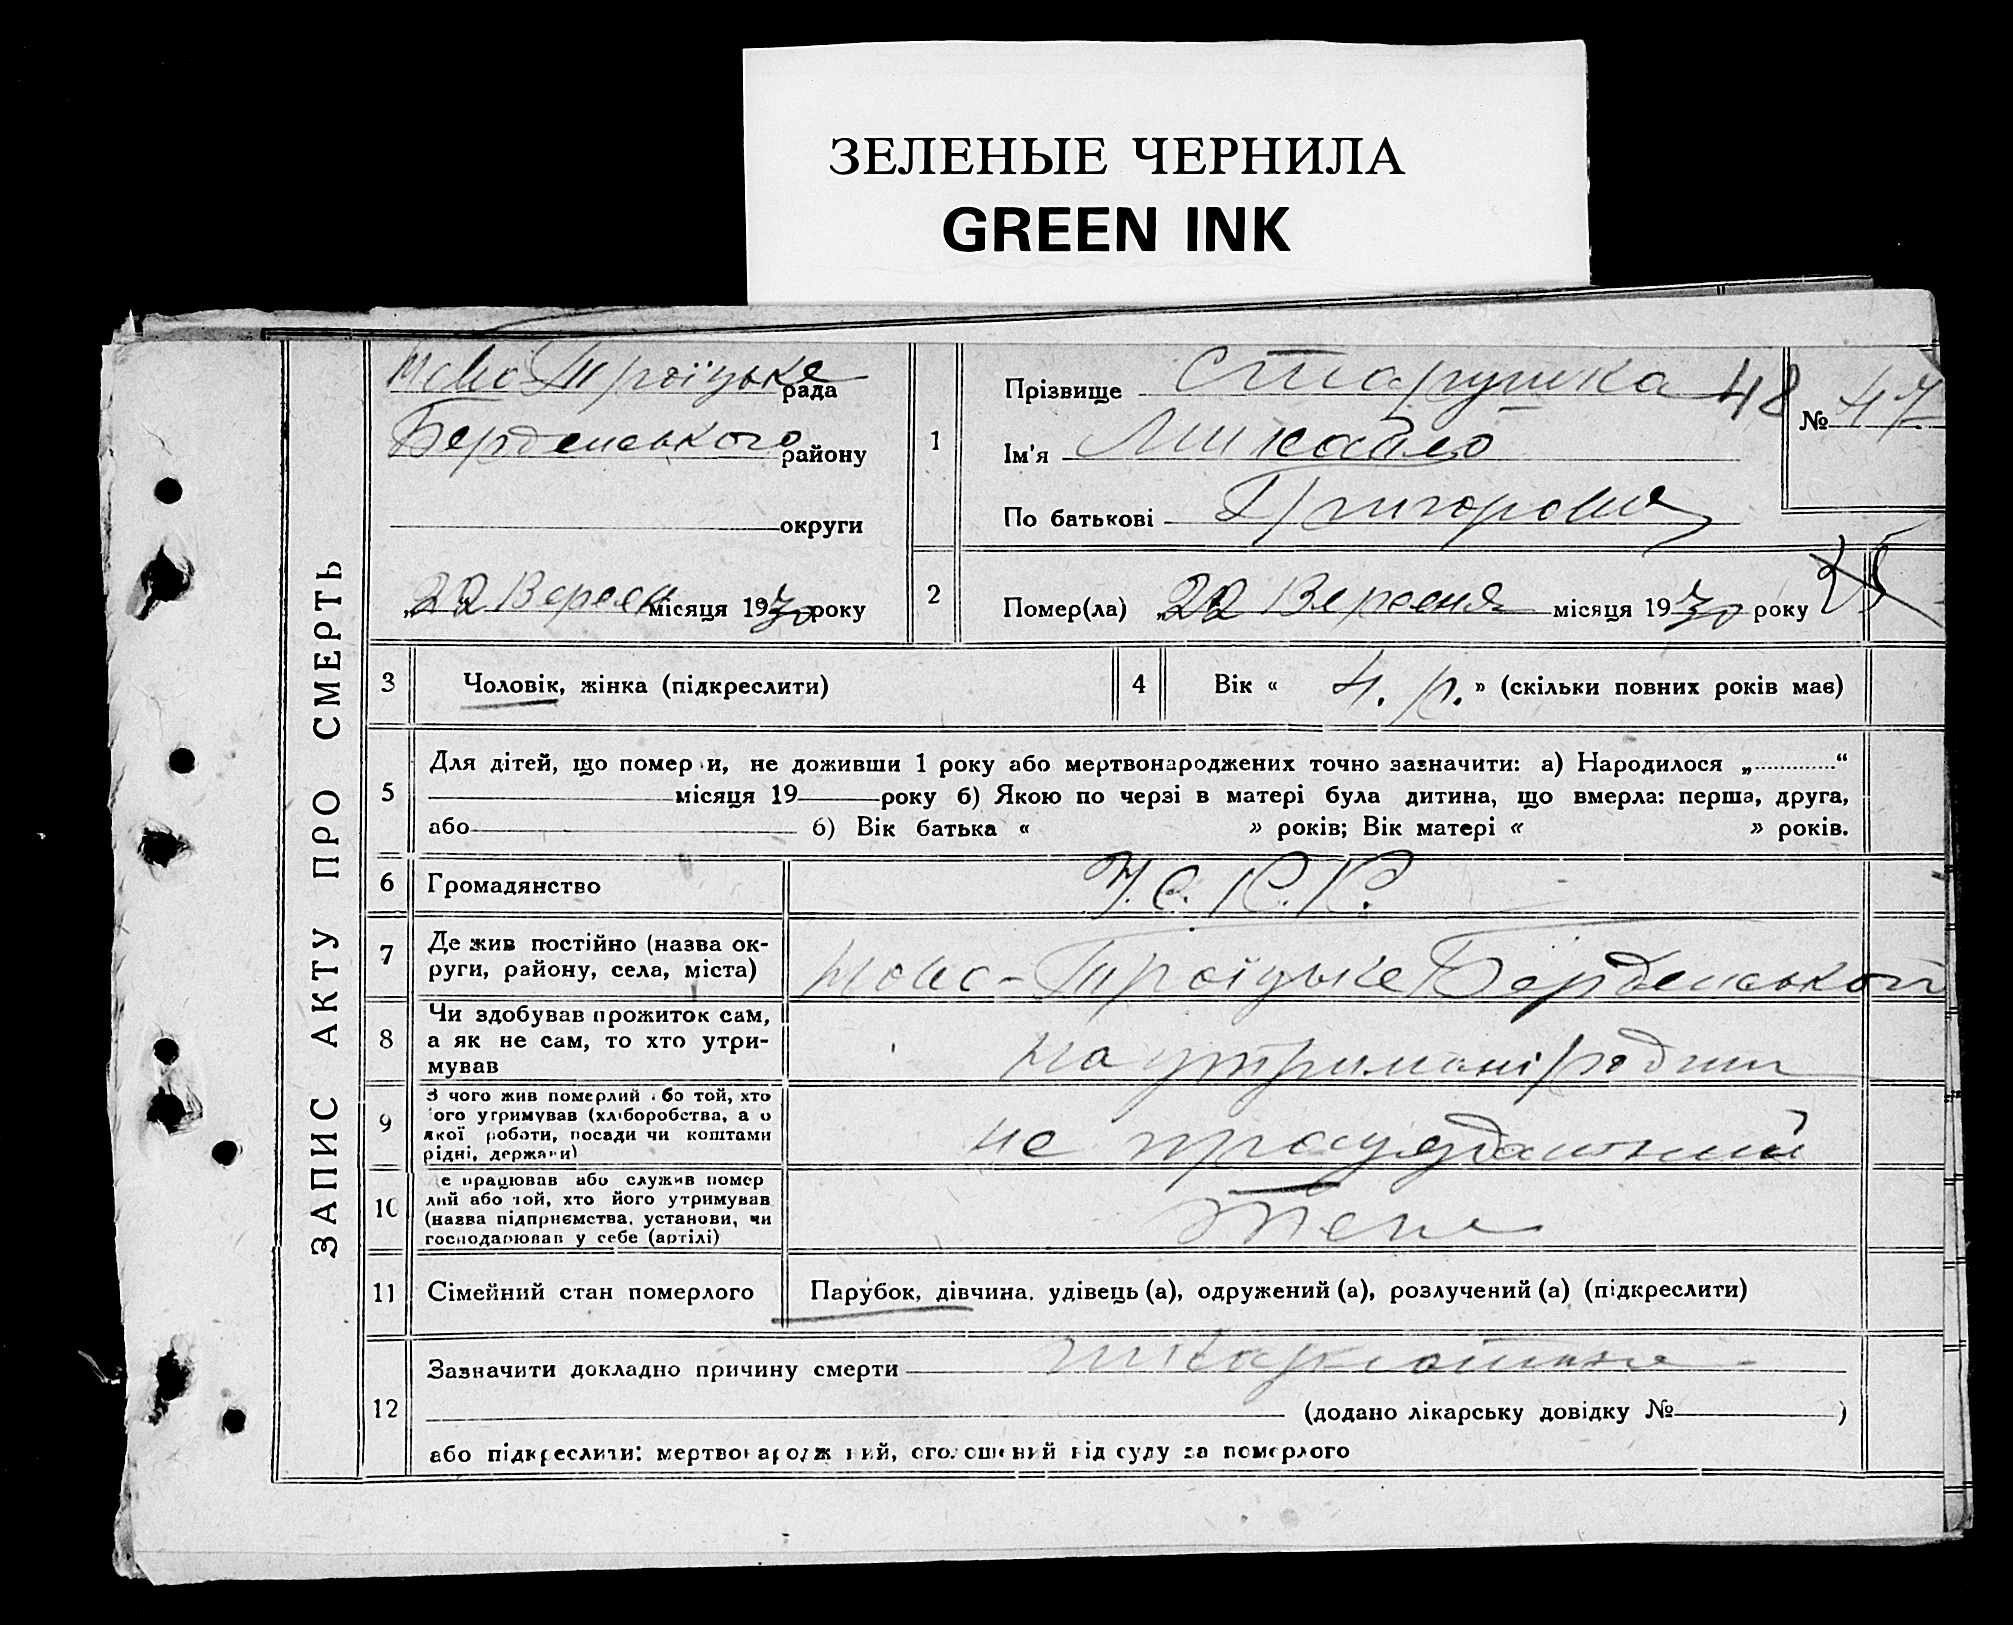 ЗЕЛЕНЫЕ ЧЕРНИЛА
GREEN INK
ЗАПИС АКТУ ПРО СМЕРТЬ
Ново-Троїцьке рада
Берденського району
округи
„22 Вересн місяця 1930 року
1
Прізвище Старушка 48
Ім'я Михайло
По батькові Григорович
№ 47
2
Помер(ла) „22 Вересня місяця 1930 року
3 Чоловік, жінка (підкреслити)
4 Вік « 4. р. » (скільки повних років має)
5
Для дітей, що померли, не доживши 1 року або мертвонароджених точно зазначити: а) Народилося „ “
місяця 19 року б) Якою по черзі в матері була дитина, що вмерла: перша, друга,
або б) Вік батька « » років; Вік матері « » років.
6 Громадянство У.С.Р.Р.
7
Де жив постійно (назва ок-
руги, району, села, міста)
Ново-Троїцьке Берденськой
8
Чи здобував прожиток сам,
а як не сам, то хто утри-
мував
на утримані родит
9
З чого жив померлий або той, хто
його утримував (хліборобства, а о
якої роботи, посади чи коштами
рідні, держави)
не
10
Де працював або служив помер
лий або той, хто його утримував
(назва підприємства, установи, чи
господарював у себе (артілі)
11 Сімейний стан померлого
Парубок, дівчина, удівець (а), одружений (а), розлучений (а) (підкреслити)
12
Зазначити докладно причину смерти
(додано лікарську довідку № )
або підкреслити: мертвонароджений, оголошений від суду за померлого